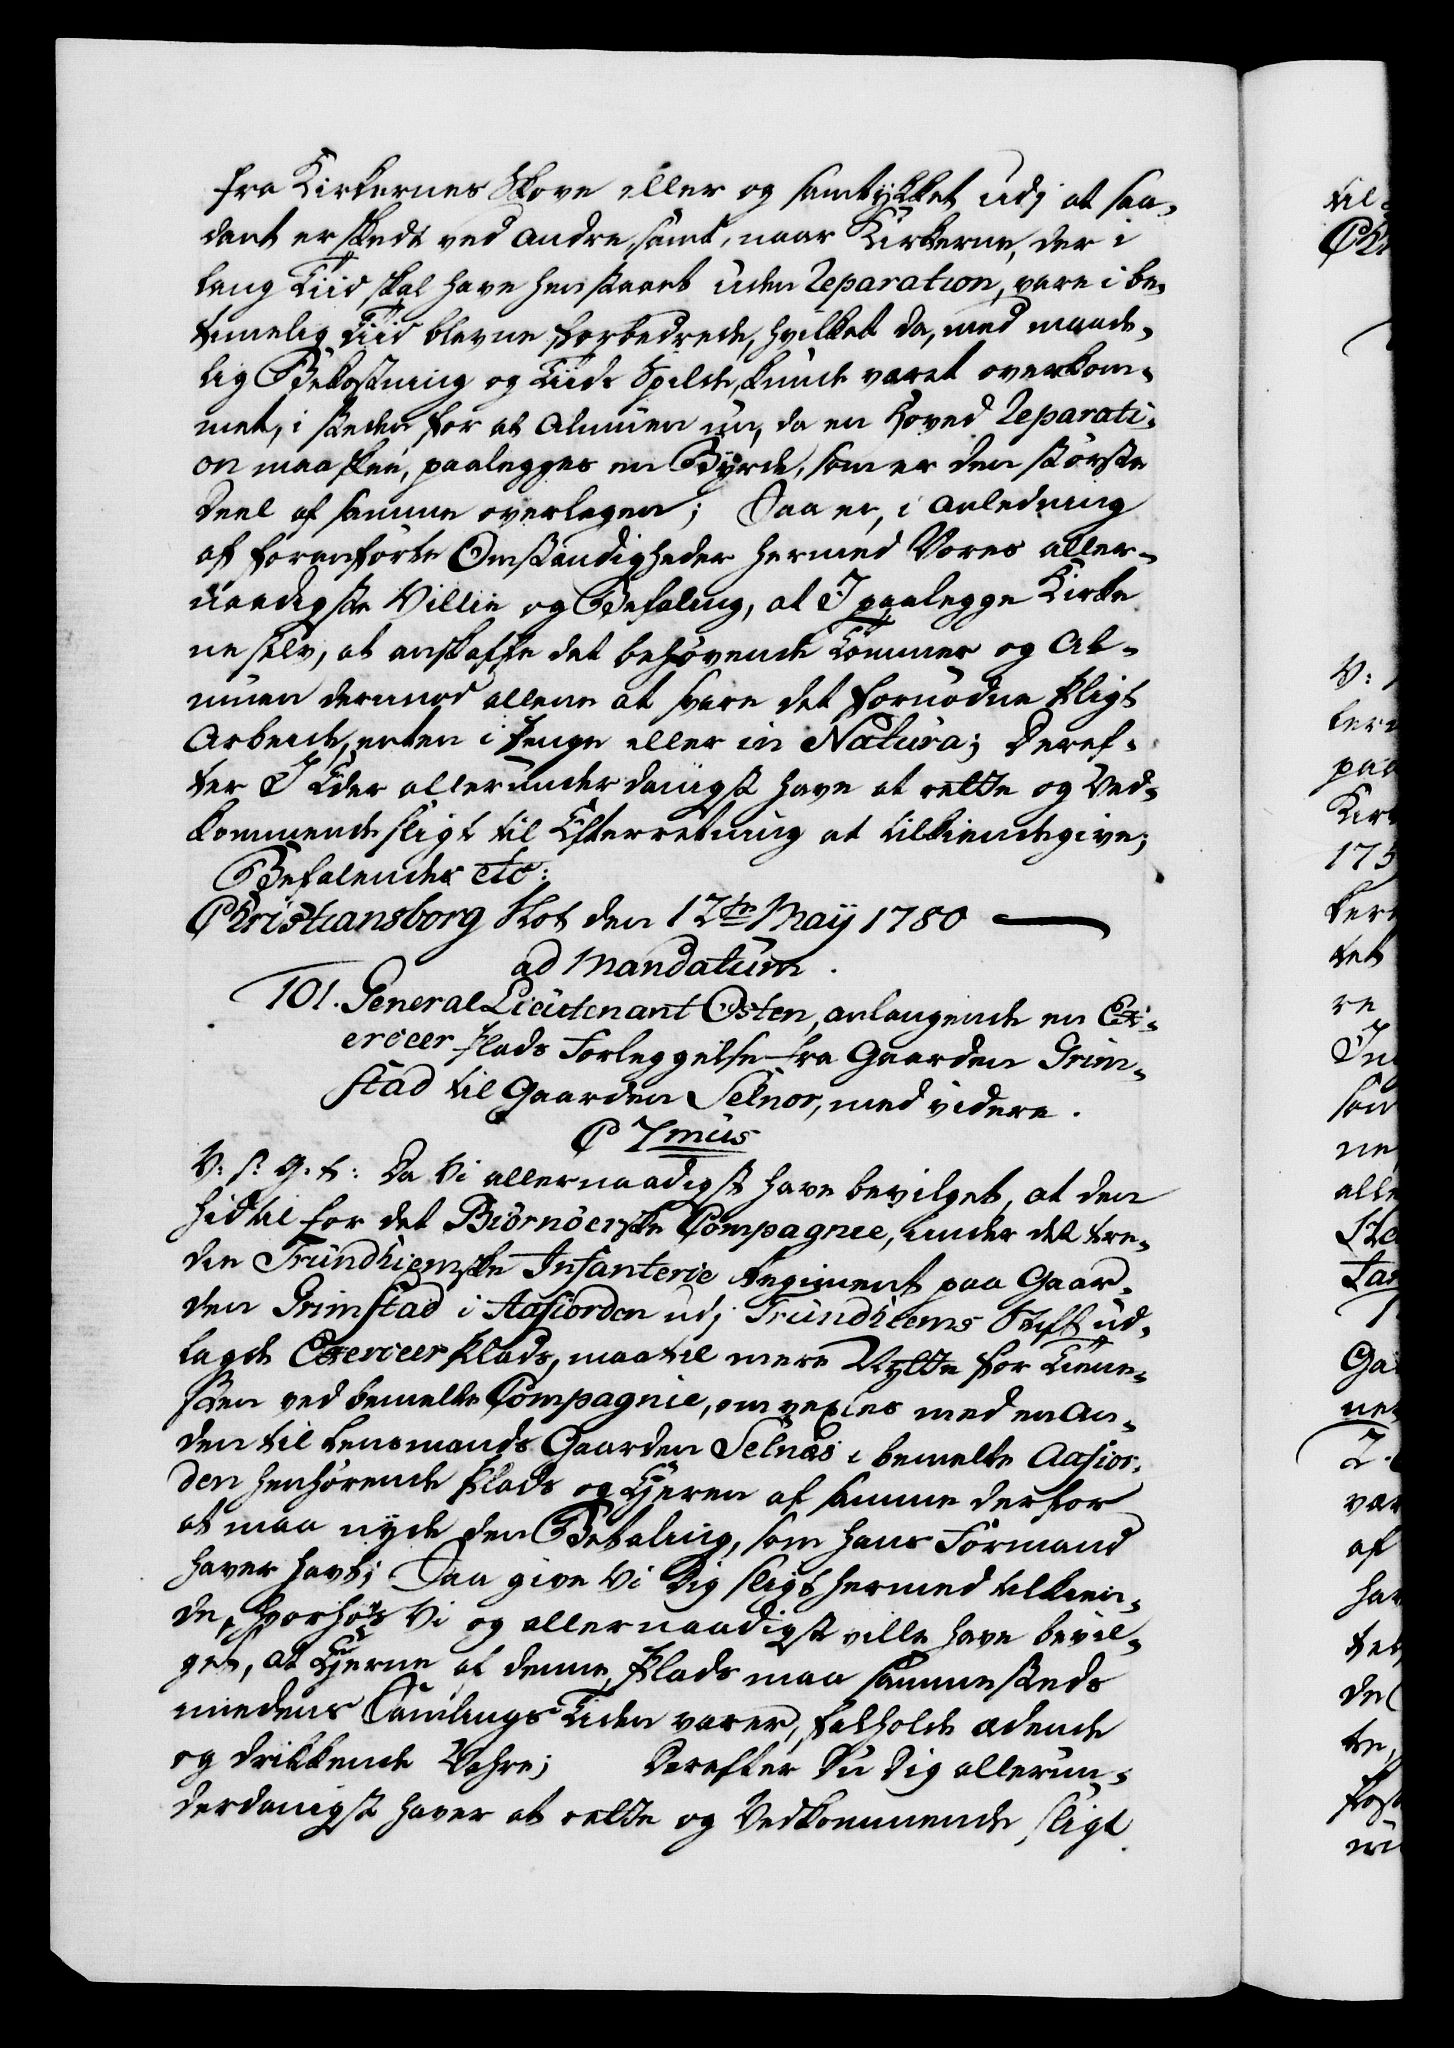 fra Kirkernes Skove eller og samtykket udj at saa-
dant er skedt ved andre, samt, naar Kirkerne, der i
lang Tiid skal have henstaaet uden Reparation, vare i be-
timelig Tiid blevne forbedrede, hvilket da, med maade-
lig Bekostning og Tiids Spilde, kunde været overkom-
met, i steden for at Almuen nu, da en Hoved Reparati-
on maa skee, paalegges en Byrde, som er den største
Deel af samme overlegen; Saa er, i Anledning
af foranførte Omstændigheder hermed Vores aller-
naadigste Villie og Befaling, at I paalegge Kirker-
ne selv, at anskaffe det behøvende Tømmer og Al-
muen derimod allene at svare det fornødne Pligt
Arbeide, enten i Penge eller in Natura; Deref-
ter I Eder allerunderdanigst have at rette og Ved-
kommende sligt til Efterretning at tilkiendegive;
Befalendes etc:
Christiansborg Slot den 12te May 1780
ad Mandatum.
101. General Lieutenant Osten, anlangende en Ex-
erceer Plads Forleggelse fra Gaarden Grim-
stad til Gaarden Selnor, med videre.
C 7mus
V: s: G: t: Da Vi allernaadigst have bevilget, at den
hidtil for det Biörnöerske Compagnie, under det tre-
die Trundhiemske Infanterie Regiment paa Gaar-
den Grimstad i Aafiorden udj Trundhiems Stift ud-
lagde Exerceer Plads, maa til mere Nytte for Tiene-
sten ved bemelte Compagnie, omvexles med en An-
den til Lensmands Gaarden Selnæs i bemelte Aafior-
den henhørende Plads og Ejeren af samme derfor
at maa nyde den Betaling, som hans Formand
haver havt; Saa give Vi Dig sligt hermed tilkien-
de, hvorhos Vi og allernaadigst ville have bevil-
get, at Ejerne af denne Plads maa sammesteds
medens Samlings Tiden varer, falholde ædende
og drikkende Vahre; Derefter Du Dig allerun-
derdanigst haver at rette og Vedkommende sligt